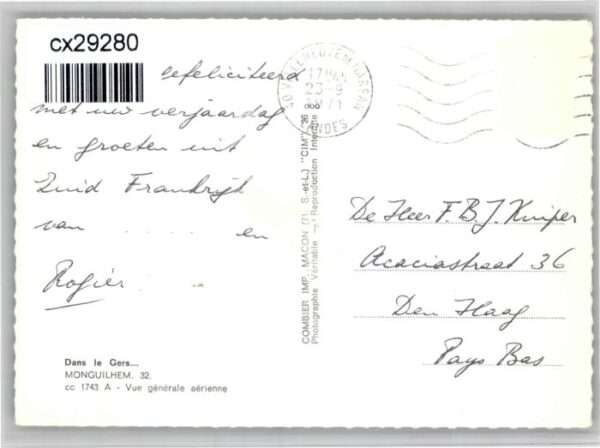 cx29280
Gefeliciteerd
met uw verjaardag
en groeten uit
Zuid Frankrijk
van en
Rogier
Dans le Gers...
MONGUILHEM. 32.
cc 1743 A - Vue générale aérienne
COMBIER IMP. MACON (71. S.-et-L.) "CIM"
Photographie Véritable - Reproduction Interdite
40 VILLENEUVE DE MARSAN
17H45
23-8
1971
LANDES
De Heer F.B.J. Kuiper
Acaciastraat 36
Den Haag
Pays Bas